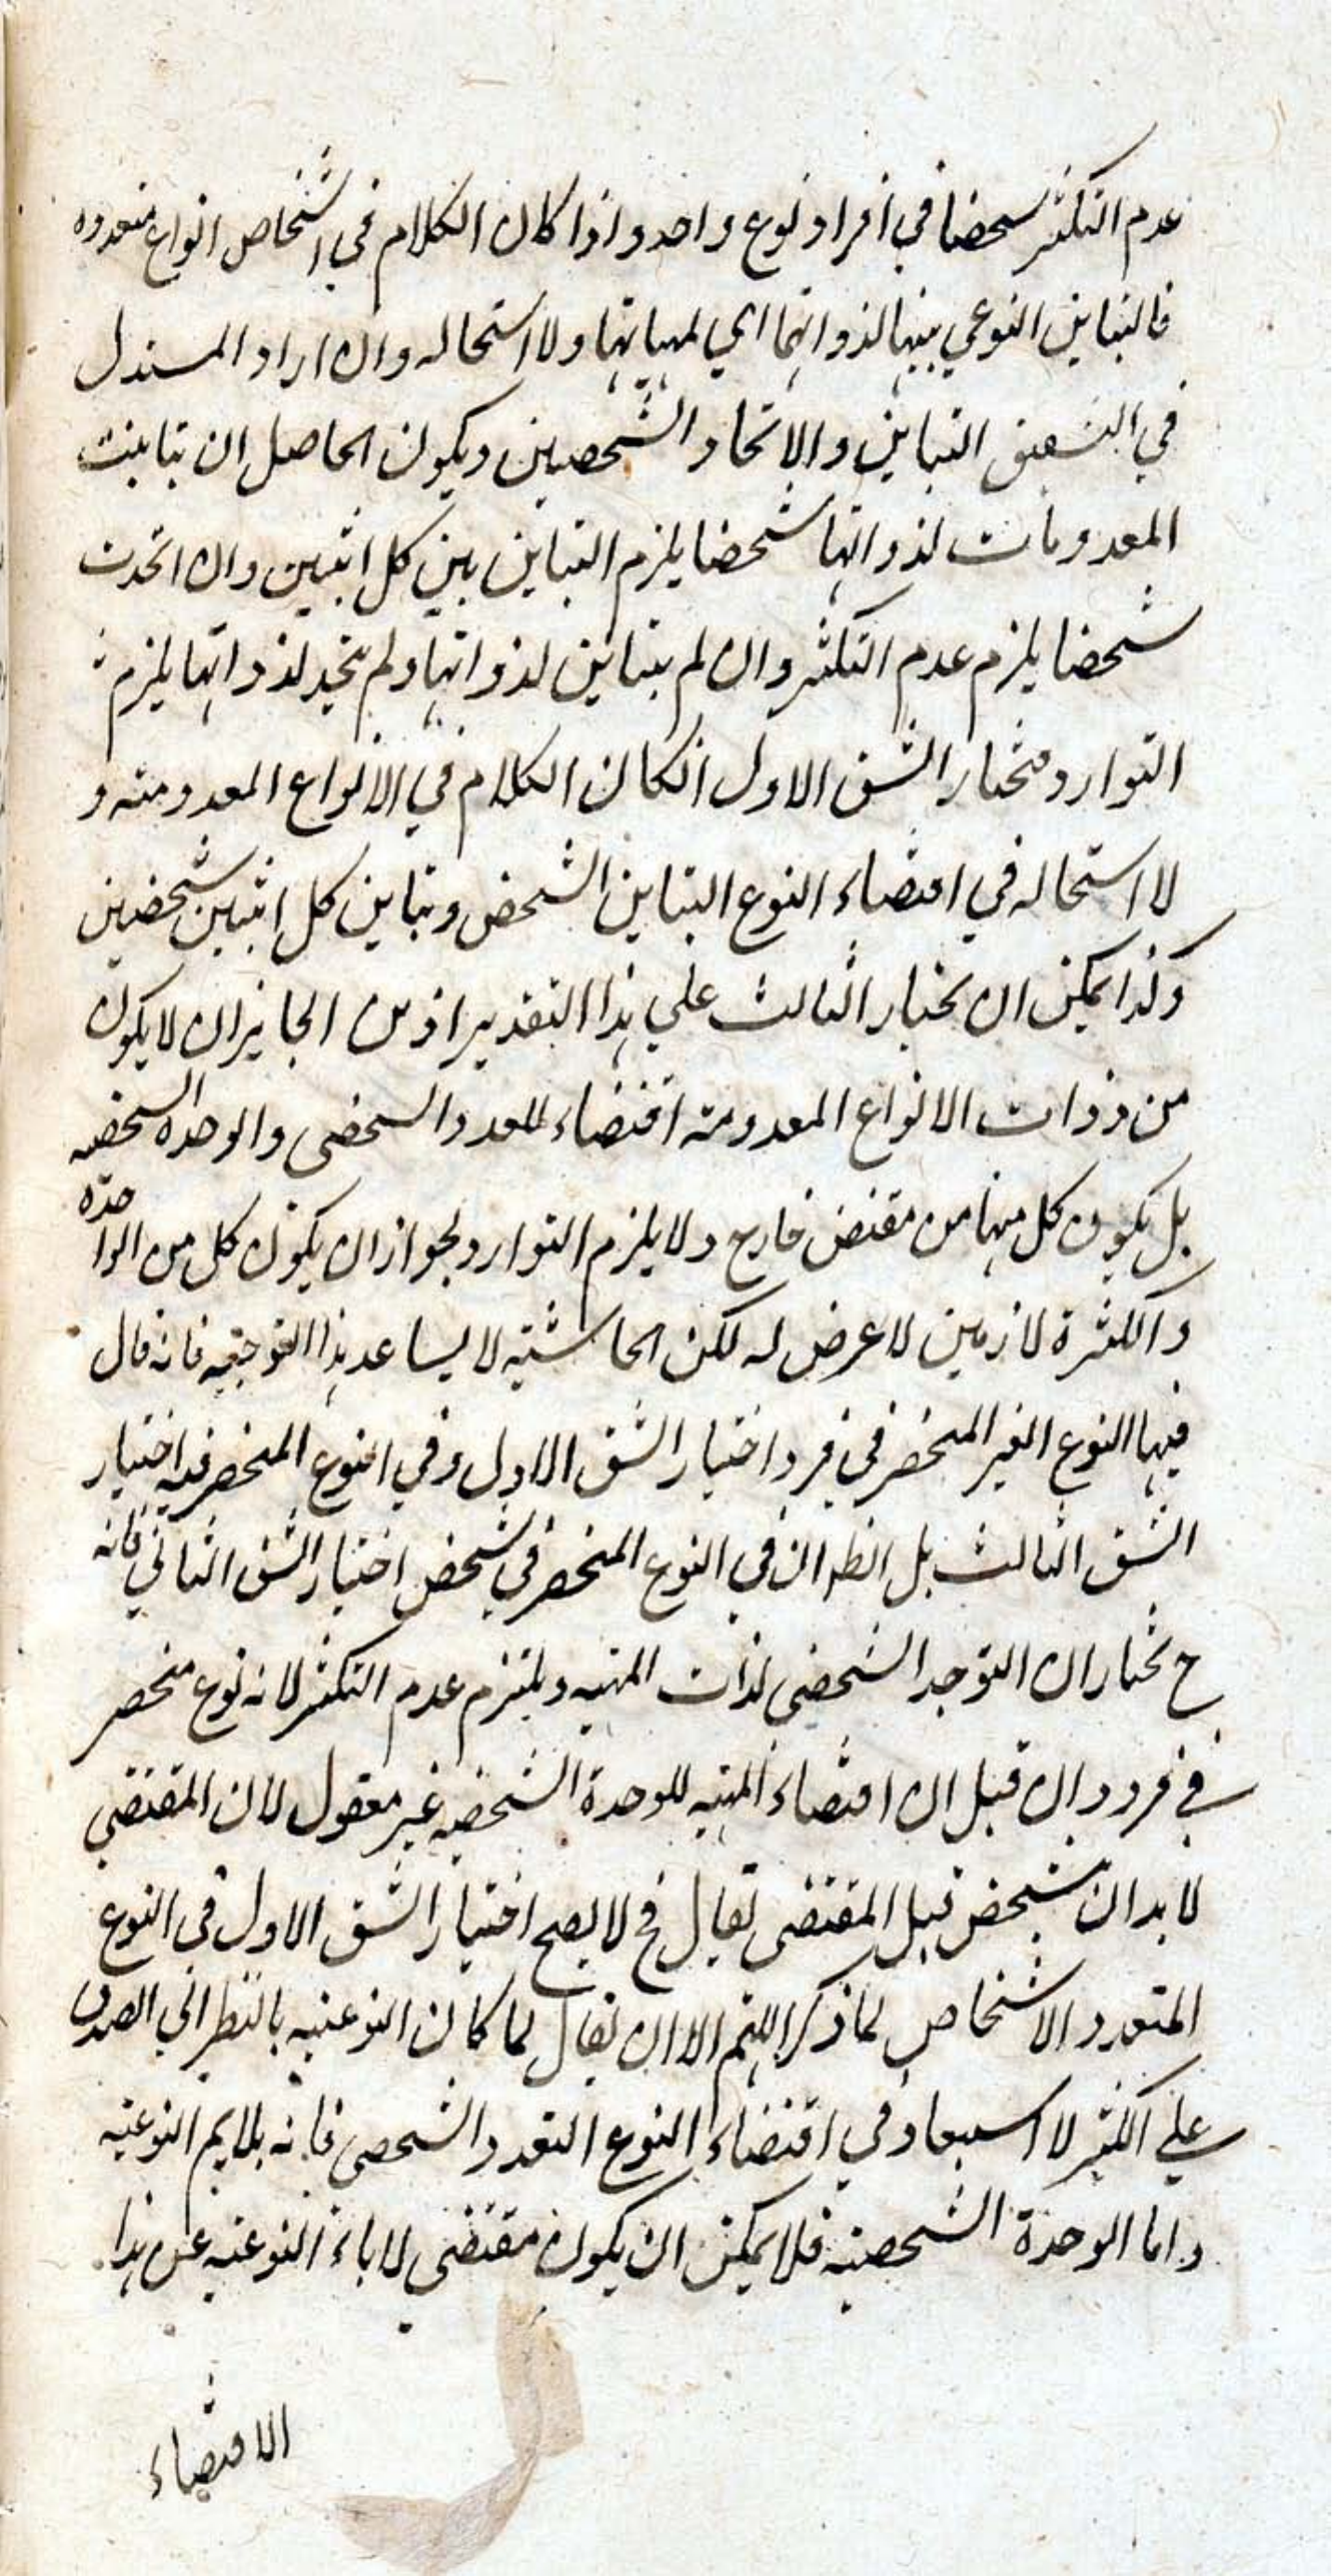 عدم التكثر شخصا في افراد نوع واحد واذا كان الكلام في اشخاص انواع متعدده
فالتباين النوعي بينها لذواتها اي لمهياتها ولا استحاله وان اراد المستدل
في الشقين التباين والاتحاد الشخصيين ويكون الحاصل ان تباينت
المعدومات لذواتها شخصا يلزم التباين بين كل اثنين وان اتحدت
شخصا يلزم عدم التكثر وان لم يتباين لذواتها ولم يتحد لذواتها يلزم
التوارد فنختار الشق الاول انكان الكلام في الانواع المعدومة و
لا استحاله في اقتضاء النوع التباين الشخص وتباين كل اثنين شخصين
وكذا يمكن ان يختار الثالث علي هذا التقدير اذ من الجايز ان لا يكون
من ذوات الانواع المعدومة اقتضاء للعدد الشخصي والوحدة الشخصيه
بل يكون كل منها من مقتض خارج ولا يلزم التوارد لجواز ان يكون كل من الواحدة
والكثرة لازمين لا عرض له لكن الحاشية لا يساعد هذا التوجيه فانه قال
فيها النوع الغير المنحصر في فرد اختيار الشق الاول وفي النوع المنحصر فيه اختيار
الشق الثالث بل الظ ان في النوع المنحصر في شخص اختيار الشق الثاني فانه
ح نختار ان التوحد الشخصي لذات المهيه ويلتزم عدم التكثر لانه نوع منحصر
في فرد وان قيل ان اقتضاء المهيه للوحدة الشخصيه غير معقول لان المقتضي
لا بد ان يتشخص قبل المقتضي نقال فح لا يصح اختيار الشق الاول في النوع
المتعدد الاشخاص لما ذكر اللهم الا ان يقال لما كان النوعيه بالنظر الي الصدق
علي الكثير لا استبعاد في اقتضاء النوع التعدد الشخصي فانه يلايم النوعيه
واما الوحدة الشخصيه فلا يمكن ان يكون مقتضي لاباء النوعيه عن هذا
الاقتضاء